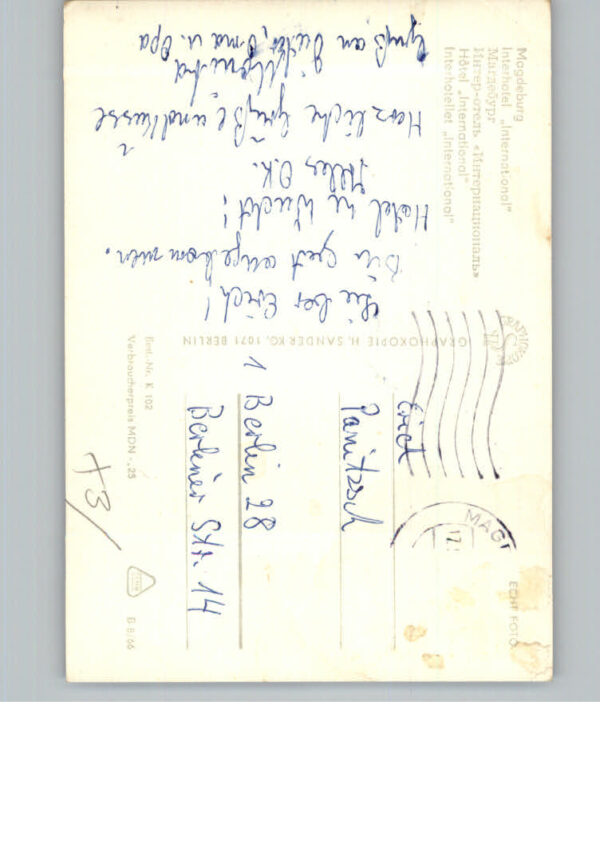 Magdeburg
Interhotel „International"
Магдебург
Интер-отель «Интернациональ»
Hôtel „International"
Interhotellet „International"
Lieber Erich!
Bin gut angekommen.
Hotel ne Wucht!
Alles O.K.
Herzliche Grüße und Küsse
Gruß an Dieter, Oma u. Opa
GRAPHOKOPIE H. SANDER KG, 1071 BERLIN
ECHT FOTO
MAG
Erich
Panitzsch
1 Berlin 28
Berliner Str. 14
Best.-Nr. K 102
Verbraucherpreis MDN -,25
B 8/66